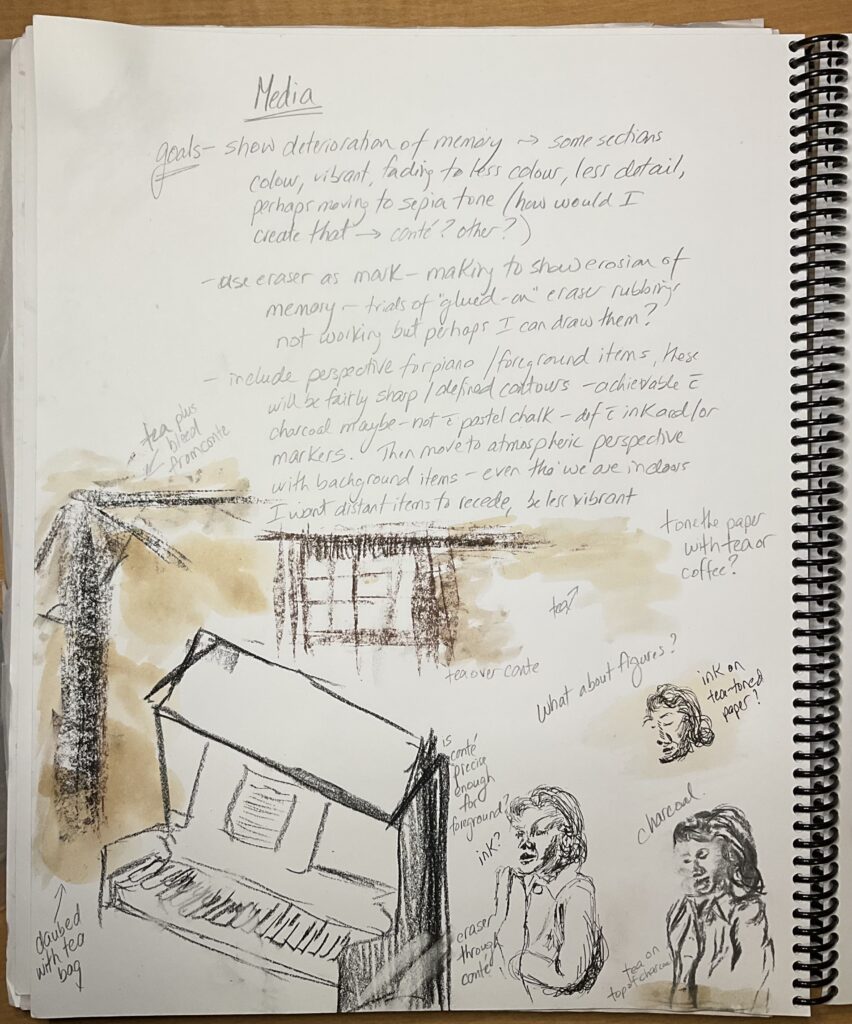 Media
goals - show deterioration of memory → some sections
colour, vibrant, fading to less colour, less detail,
perhaps moving to sepia tone (how would I
create that → conté? other?)
- use eraser as mark-making to show erosion of
memory - trials of "glued-on" eraser rubbings
not working but perhaps I can draw them?
- include perspective for piano / foreground items, these
will be fairly sharp / defined contours - achievable c̄
charcoal maybe - not c̄ pastel chalk - def c̄ ink and/or
markers. Then move to atmospheric perspective
with background items - even tho' we are indoors
I want distant items to recede, be less vibrant
tea plus
bleed
from conte
tone the paper
with tea or
coffee?
tea?
tea over conte
What about figures?
ink on
tea-toned
paper?
is
conté
precise
enough
for
foreground?
ink?
charcoal
eraser
through
conté
tea on
top of charcoal
daubed
with tea
bag